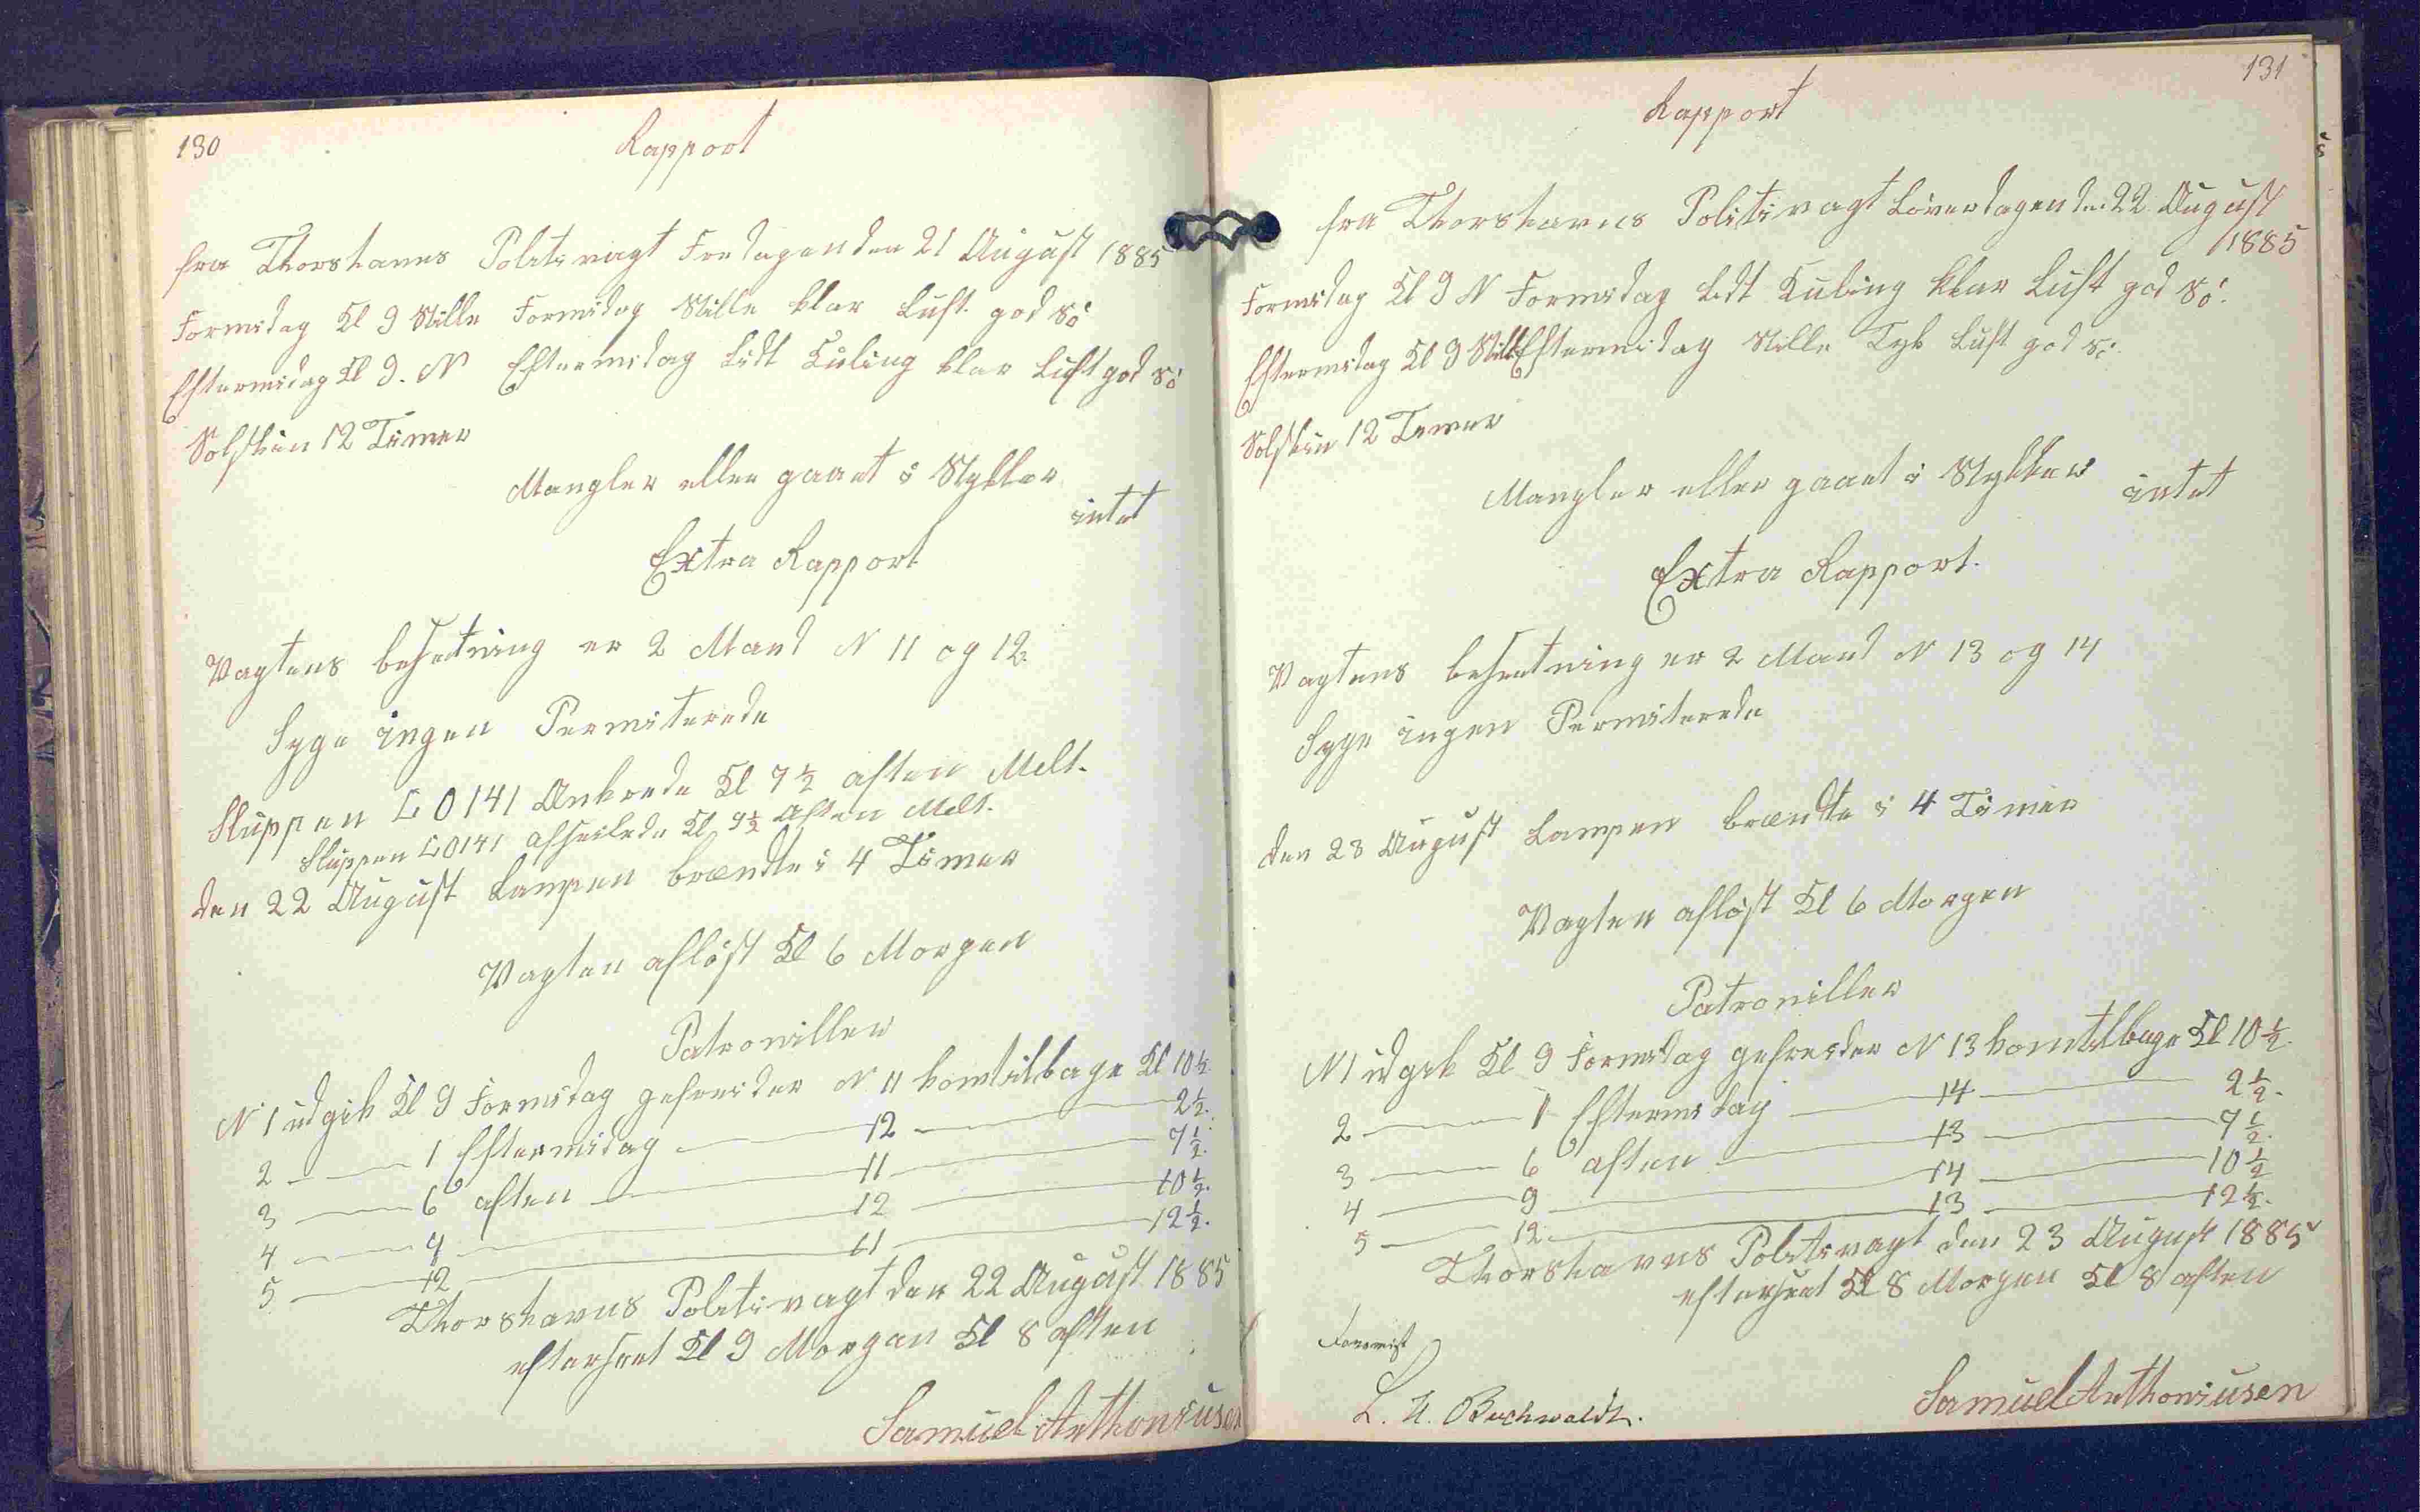 130
Rapport
fra Thorshavns Politivagt Fredagen den 21 August 1885
Formidag Kl 9 Stille Formidag Stille klar Luft god Sö
Eftermidag Kl 9. N Eftermidag Lidt Kuling klar Luft god Sö
Solskin 12 Timer
Mangler eller gaaet i Stykker
intet
Extra Rapport
Vagtens besetning er 2 Mand N 11 og 12.
Syge ingen Permiterede
Sluppen L 0141 Ankrede Kl 7½ aften Melt.
Sluppen L 0141 afseilede Kl 9½ Aften Melt.
den 22 August Lampen brændte i 4 Timer
Vagten aflöst Kl 6 Morgen
Patroniller
N 1 udgik Kl 9 Formidag gefreider N 11 kom tilbage Kl 10½
2 — 1 Eftermidag — 12 — 2½.
3 — 6 aften — 11 — 7½.
4 — 9 — 12 — 10½.
5 — 12 — 11 — 12½.
Thorshavns Politivagt den 22 August 1885
efterseet Kl 9 Morgen Kl 8 aften
Samuel Anthoniusen
131
Rapport
fra Thorshavns Politivagt Löverdagen den 22 August
1885
Formidag Kl 9 N Formidag Lidt Kuling klar Luft god Sö.
Eftermidag Kl 9 Stille Eftermidag Stille Tyk Luft god Sö.
Solskin 12 Timer
Mangler eller gaaet i Stykker intet
Extra Rapport.
Vagtens besetning er 2 Mand N 13 og 14
Syge ingen Permiterede
den 23 August Lampen brændte i 4 Timer
Vagten aflöst Kl 6 Morgen
Patroniller
N 1 udgik Kl 9 Formidag gefreider N 13 kom tilbage Kl 10½.
2 — 1 Eftermidag — 14 — 2½.
3 — 6 aften — 13 — 7½.
4 — 9 — 14 — 10½
5 — 12 — 13 — 12½.
Thorshavns Politivagt den 23 August 1885
efterseet Kl 8 Morgen Kl 8 aften
Buchwaldt.
Samuel Anthoniusen